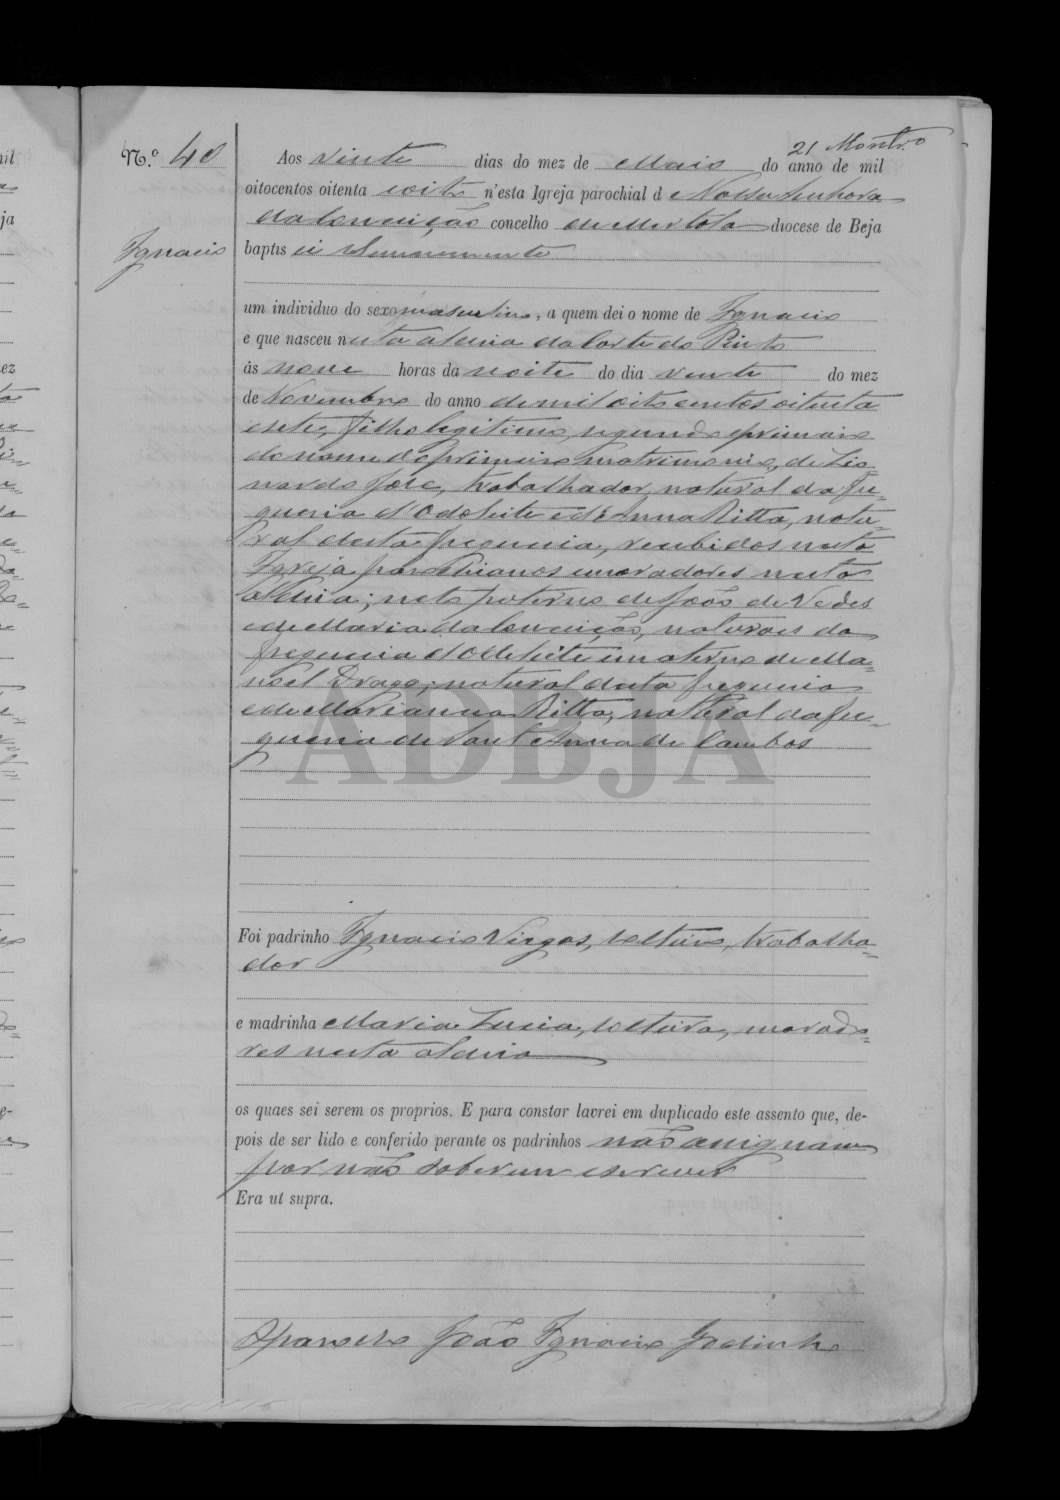 21 Montr.o
N.º 40
Aos vinte dias do mez de Maio do anno de mil
oitocentos oitenta eoito n'esta Igreja parochial de Nossa Senhora
da Conceição concelho de Mertola diocese de Beja
Ignacio
baptisei solemnemente
um individuo do sexo masculino, a quem dei o nome de Ignacio
e que nasceu nesta aldeia da Corte do Pinto
ás nove horas da noite do dia vinte do mez
de Novembro do anno de mil oito centos oitenta
esete, filho legitimo, segundo e primeiro
do nome do primeiro matrimonio, de Lio-
nardo José, trabalhador, natural da fre-
guesia d'Odeleite e d'Anna Ritta, natu-
ral desta freguesia, recebidos nesta
Igreja parochianos e moradores nesta
aldeia; neto paterno de João de
e de Maria da Conceição, naturaes da
freguesia d'Odeleite e materno de Ma-
noel Drago, natural desta freguesia
e de Marianna Ritta, natural da fre-
guesia de Sant'Anna de Cambas
ADBJA
Foi padrinho Ignacio Virgas, solteiro, trabalha-
dor
e madrinha Maria Luzia, solteira, morado-
res nesta aldeia
os quaes sei serem os proprios. E para constar lavrei em duplicado este assento que, de-
pois de ser lido e conferido perante os padrinhos não assignam
por não saberem escrever
Era ut supra.
O parocho João Ignacio Godinho